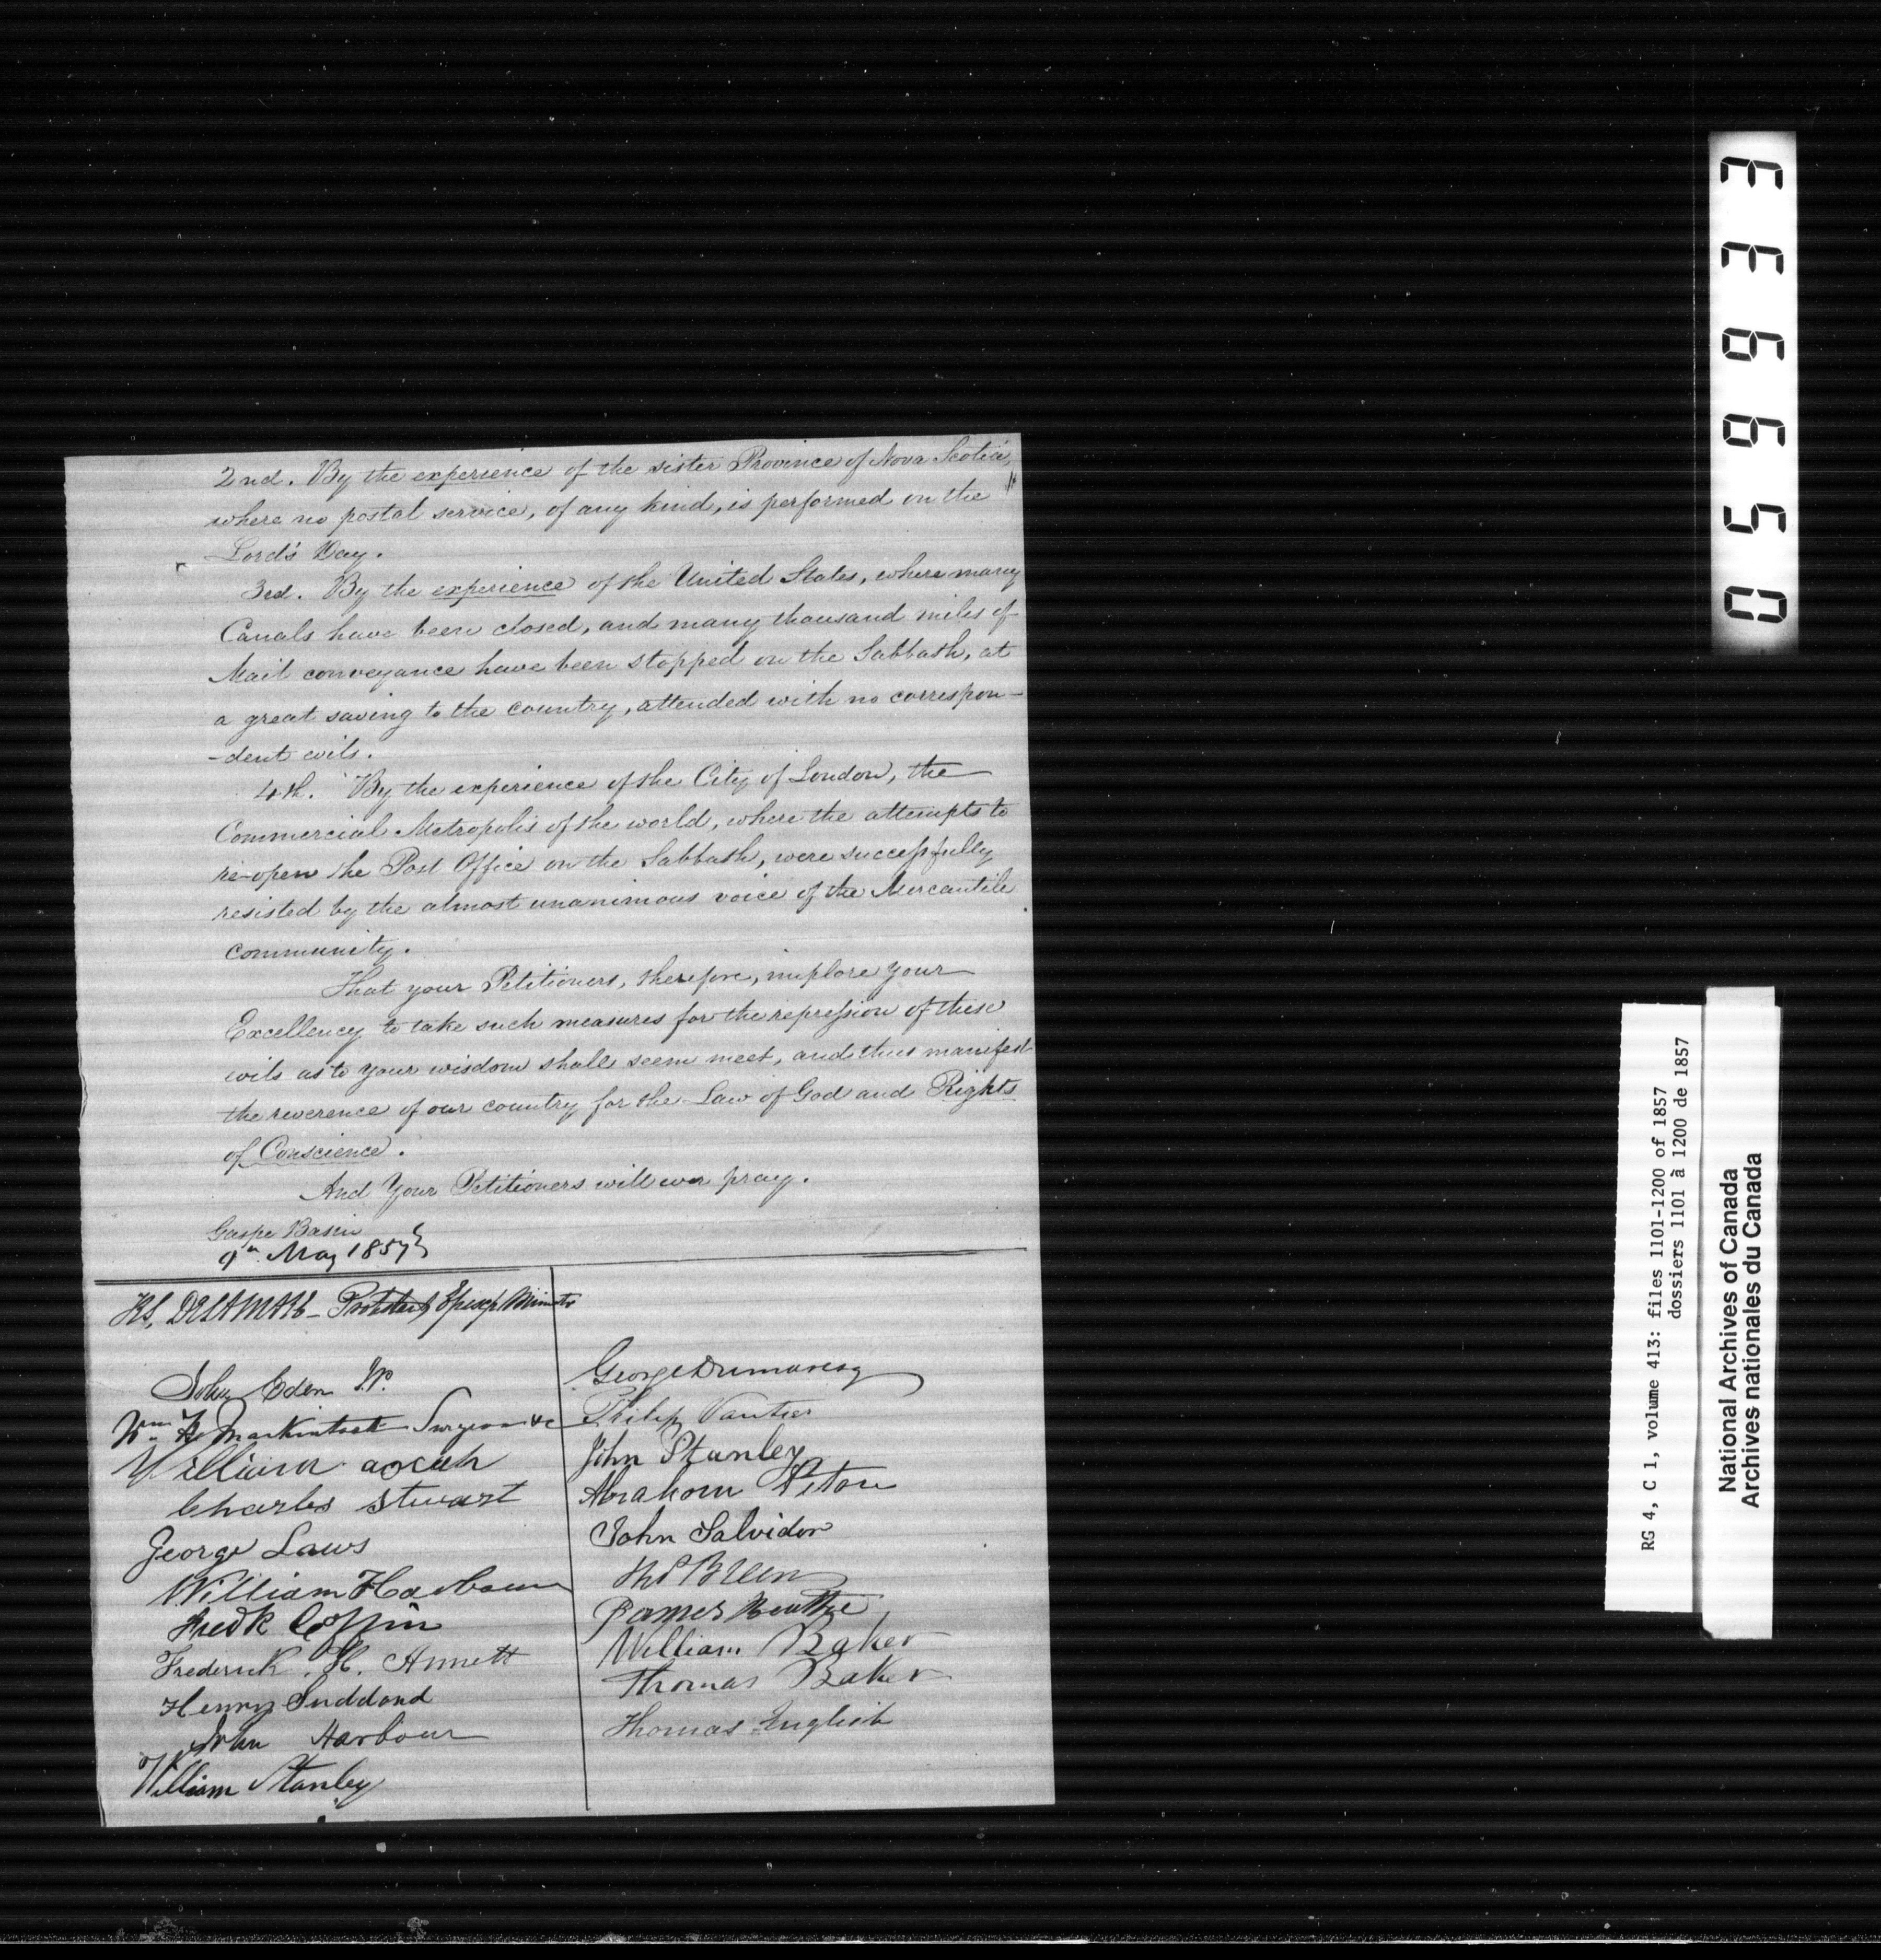 2nd. By the experience of the sister Province of Nova Scotia,
where no postal service, of any kind, is performed on the
Lord's Day.
3rd. By the experience of the United States, where many
Canals have been closed, and many thousand miles of
Mail conveyance have been stopped on the Sabbath, at
a great saving to the country, attended with no correspon-
-dent evils.
4th. By the experience of the City of London, the
Commercial Metropolis of the world, where the attempts to
re-open the Post Office on the Sabbath, were successfully
resisted by the almost unanimous voice of the Mercantile
community.
That your Petitioners, therefore, implore your
Excellency to take such measures for the repression of these
evils as to your wisdom shall seem meet, and thus manifest
the reverence of our country for the Law of God and Rights
of Conscience.
And Your Petitioners will ever pray.
Gaspe Basin
9th May 1857
Minister
John Eden
Wm Mackintosh Surgeon &c
William
Charles Stewart
George Laws
William Harbour
Fredk Coffin
Frederick. H. Annett
Henry Suddard
John Harbour
William Stanley
George Dumaresq
Philip Vautier
John Stanley
Abraham
John Salvidor
James
William Baker
Thomas Baker
Thomas English
033650
RG 4, C 1, volume 413: files 1101-1200 of 1857
dossiers 1101 à 1200 de 1857
National Archives of Canada
Archives nationales du Canada